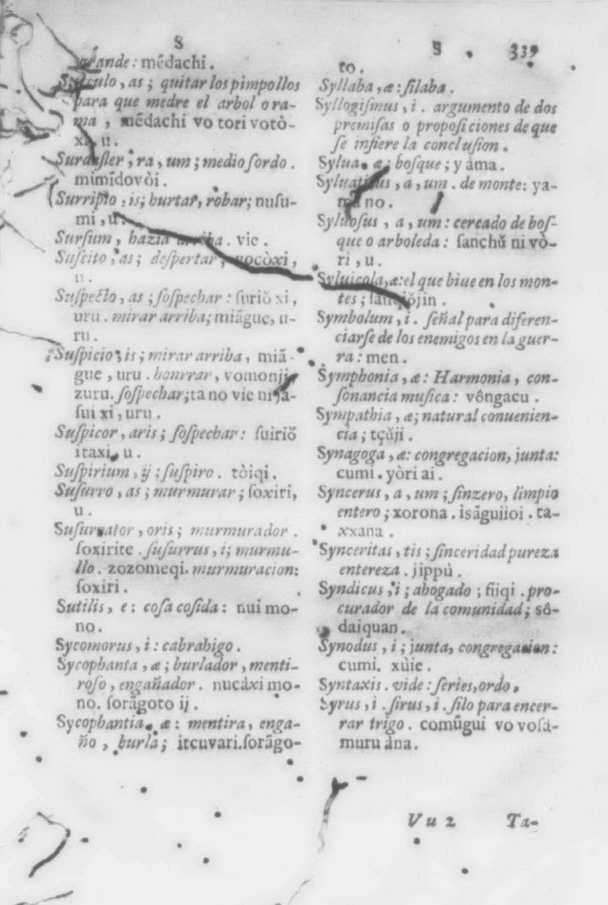 S
grande: mẽdachi.
as; quitar los pimpollos
para que medre el arbol o ra-
ma, mẽdachi vo tori votò-
xi, u.
Surdaster, ra, um; medio sordo.
mimidovòi.
Surripio, is; hurtar, robar; nusu-
mi, u.
Sursum, hazia arriba. vie.
Suscito, as; despertar; vocòxi,
u.
Suspecto, as; sospechar: suriŏ xi,
uru. mirar arriba; miãgue, u-
ru.
Suspicio, is; mirar arriba, miã-
gue, uru. honrrar, vomonji,
zuru. sospechar; ta no vie ni ja-
sui xi, uru.
Suspicor, aris; sospechar: suiriŏ
itaxi, u.
Suspirium, ij; suspiro. tòiqi.
Susurro, as; murmurar; soxiri,
u.
Susurrator, oris; murmurador.
soxirite. susurrus, i; murmu-
llo. zozomeqi. murmuracion:
soxiri.
Sutilis, e: cosa cosida: nui mo-
no.
Sycomorus, i: cabrahigo.
Sycophanta, æ; burlador, menti-
roso, engañador. nucáxi mo-
no. sorãgoto ij
Sycophantia, æ: mentira, enga-
ño, burla; itcuvari. sorãgo-
S 339
to.
Syllaba, æ: silaba.
Syllogismus, i. argumento de dos
premisas o proposiciones de que
se infiere la conclusion.
Sylua. æ: bosque; yàma.
Syluaticus, a, um. de monte: ya-
ma no.
Syluosus, a, um: cercado de bos-
que o arboleda: sanchŭ ni vò-
ri, u.
Syluicola, æ: el que biue en los mon-
tes; sanqiŏjin.
Symbolum, i. señal para diferen-
ciarse de los enemigos en la guer-
ra: men.
Symphonia, æ: Harmonia, con-
sonancia musica: vôngacu.
Sympathia, æ; natural conuenien-
cia; tçŭji.
Synagoga, æ: congregacion, junta:
cumi. yòri ai.
Syncerus, a, um; sinzero, limpio
entero; xorona. isãguijoi. ta-
xxana.
Synceritas, tis; sinceridad pureza
entereza. jippù.
Syndicus, i; abogado; fiiqi. pro-
curador de la comunidad; sô-
daiquan.
Synodus, i; junta, congregacion:
cumi. xùie.
Syntaxis. vide: series, ordo.
Syrus, i. sirus, i. silo para encer-
rar trigo. comŭgui vo vosá-
muru àna.
Vu2 Ta-